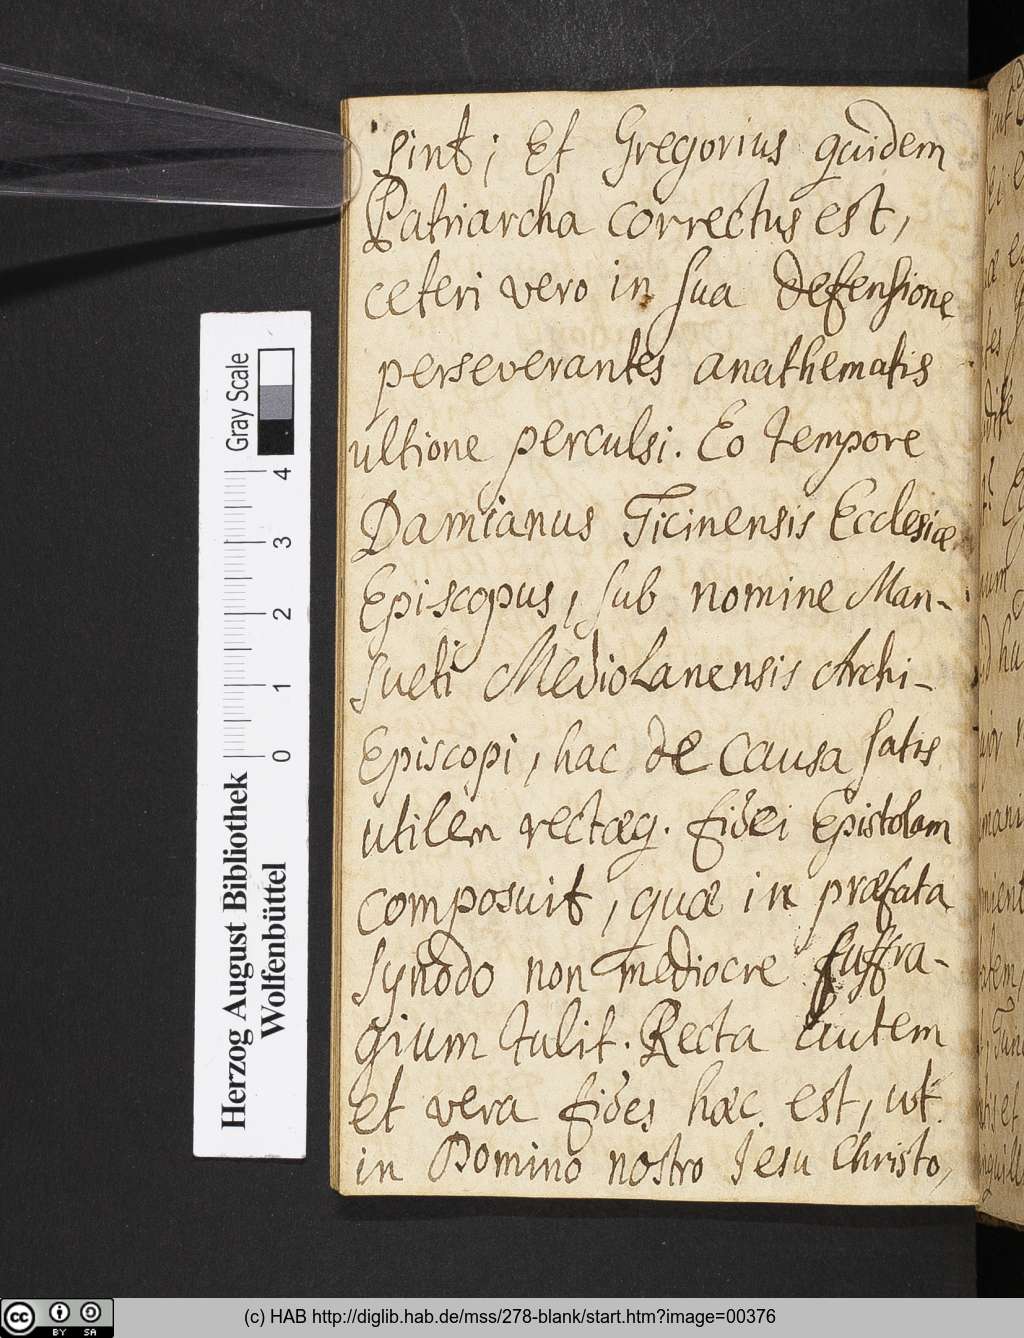 sint; Et Gregorius quidem
Patriarcha correctus est,
ceteri vero in sua defensione
perseverantes anathematis
ultione perculsi. Eo tempore
Damianus Ticinensis Ecclesiæ
Episcopus, sub nomine Man-
sueti Mediolanensis Archi-
Episcopi, hac de causa satis
utilem rectæq. fidei Epistolam
composuit, quæ in præfata
synodo non mediocre suffra-
gium tulit. Recta autem
et vera fides hæc est, ut
in Domino nostro Jesu Christo,
Gray Scale
4
3
2
1
0
Herzog August Bibliothek
Wolfenbüttel
cc BY SA
(c) HAB http://diglib.hab.de/mss/278-blank/start.htm?image=00376